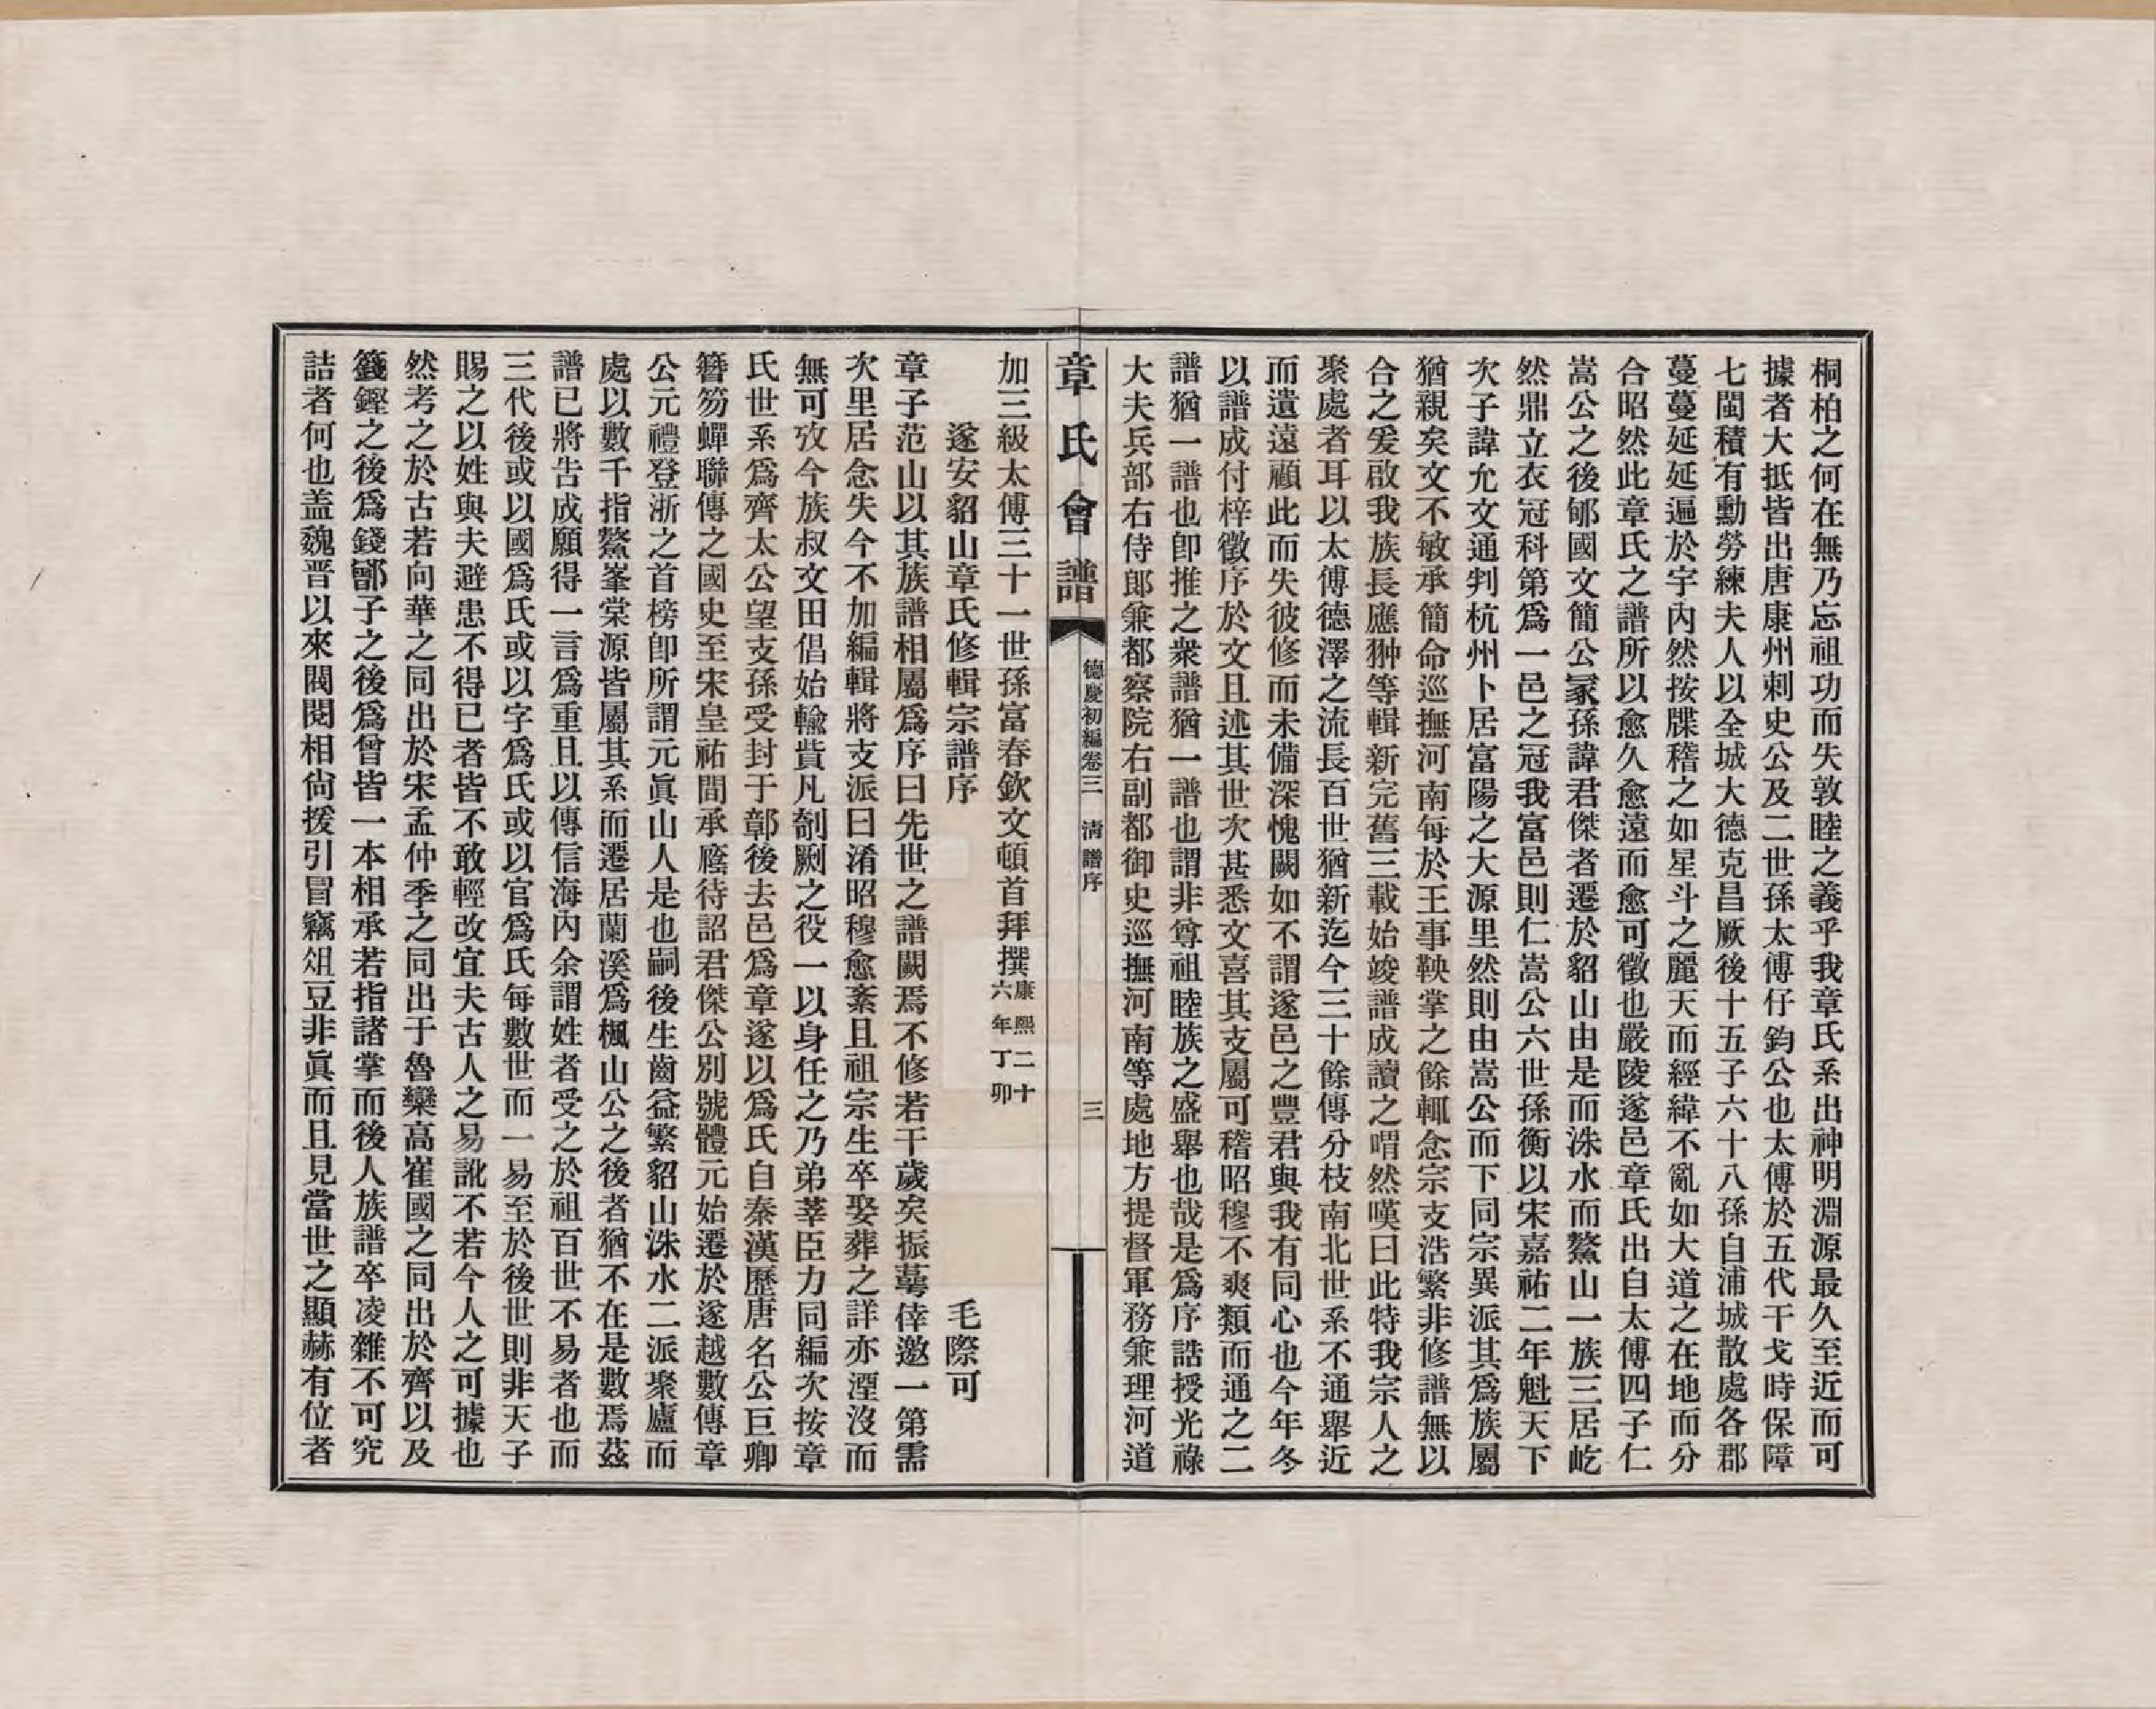 桐柏之何在無乃忘祖功而失敦睦之義乎我章氏系出神明淵源最久至近而可
據者大抵皆出唐康州剌史公及二世孫太傅仔鈞公也太傅於五代干戈時保障
七閩積有勳勞練夫人以全城大德克昌厥後十五子六十八孫自浦城散處各郡
蔓蔓延延遍於宇內然按牒稽之如星斗之麗天而經緯不亂如大道之在地而分
合昭然此章氏之譜所以愈久愈遠而愈可徵也嚴陵遂邑章氏出自太傅四子仁
嵩公之後郇國文簡公冢孫諱君傑者遷於貂山由是而洙水而鰲山一族三居屹
然鼎立衣冠科第爲一邑之冠我富邑則仁嵩公六世孫衡以宋嘉祐二年魁天下
次子諱允文通判杭州卜居富陽之大源里然則由嵩公而下同宗異派其爲族屬
猶親矣文不敏承簡命巡撫河南每於王事鞅掌之餘輒念宗支浩繁非修譜無以
合之爰啟我族長應翀等輯新完舊三載始竣譜成讀之喟然嘆曰此特我宗人之
聚處者耳以太傅德澤之流長百世猶新迄今三十餘傳分枝南北世系不通舉近
而遺遠顧此而失彼修而未備深愧闕如不謂遂邑之豐君與我有同心也今年冬
以譜成付梓徵序於文且述其世次甚悉文喜其支屬可稽昭穆不爽類而通之二
譜猶一譜也卽推之衆譜猶一譜也謂非尊祖睦族之盛舉也哉是爲序誥授光祿
大夫兵部右侍郎兼都察院右副都御史巡撫河南等處地方提督軍務兼理河道
章氏會譜
德慶初編卷三 淸譜序
三
加三級太傅三十一世孫富春欽文頓首拜撰康熙二十六年丁卯
遂安貂山章氏修輯宗譜序 毛際可
章子范山以其族譜相屬爲序曰先世之譜闕焉不修若干歲矣振蕚倖邀一第需
次里居念失今不加編輯將支派日淆昭穆愈紊且祖宗生卒娶葬之詳亦湮沒而
無可攷今族叔文田倡始輸貲凡剞劂之役一以身任之乃弟莘臣力同編次按章
氏世系爲齊太公望支孫受封于鄣後去邑爲章遂以爲氏自秦漢歷唐名公巨卿
簪笏蟬聯傳之國史至宋皇祐間承廕待詔君傑公別號體元始遷於遂越數傳章
公元禮登浙之首榜卽所謂元眞山人是也嗣後生齒益繁貂山洙水二派聚廬而
處以數千指鰲峯棠源皆屬其系而遷居蘭溪爲楓山公之後者猶不在是數焉茲
譜已將吿成願得一言爲重且以傳信海內余謂姓者受之於祖百世不易者也而
三代後或以國爲氏或以字爲氏或以官爲氏每數世而一易至於後世則非天子
賜之以姓與夫避患不得已者皆不敢輕改宜夫古人之易訛不若今人之可據也
然考之於古若向華之同出於宋孟仲季之同出于魯欒高崔國之同出於齊以及
籛鏗之後爲錢鄫子之後爲曾皆一本相承若指諸掌而後人族譜卒凌雜不可究
詰者何也盖魏晋以來閥閱相尙援引冒竊俎豆非眞而且見當世之顯赫有位者